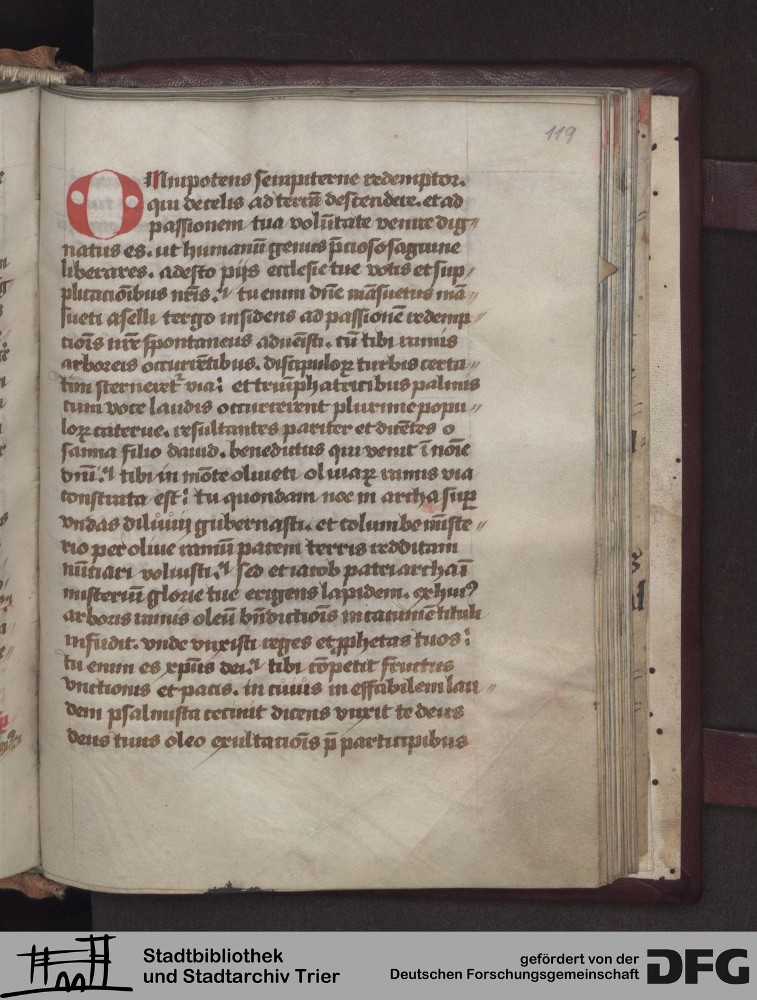 119
OMnipotens sempiterne redemptor.
qui de celis ad terrā descendere. et ad
passionem tua volūtate venire dig〃
natus es. ut humanū genus p̄cioso sagwine
liberares. adesto pijs ecclesie tue votis et sup/
plicaciōibus nr̄is. tu enim dn̄e māsuetus mā〃
sueti aselli tergo insidens ad passionē redemp〃
ciōis nr̄e spontaneus aduēisti. cū tibi ramis
arboreis occurrētibus. discipuloꝝ turbis certa〃
tim sterneret᷑ via: et triūphatricibus palmis
cum voce laudis occurrerent plurime popu〃
loꝝ caterue. resultantes pariter et dicētes o
sanna filio dauid. benedictus qui venit ī noīe
dn̄i. tibi in mōte oliueti oliuaꝝ ramis via
constrata est: tu quondam noe in archa suꝑ
vndas diluuij gubernasti. et columbe mīste〃
rio per oliue ramū pacem terris redditam
nūciari voluisti. Sed et iacob patriarcha ī
misteriū glorie tue erigens lapidem. ex huiꝰ
arboris ramis oleū bn̄dictiōis in cacumīe tituli
infudit. vnde vnxisti reges et ꝓphetas tuos:
tu enim es xp̄us dei. tibi cōpetit fructus
vnctionis et pacis. in cuius in effabilem lau〃
dem psalmista cecinit dicens vnxit te deus
deus tuus oleo exultaciōis p̄ participibus
Stadtbibliothek
und Stadtarchiv Trier
gefördert von der
Deutschen Forschungsgemeinschaft
DFG